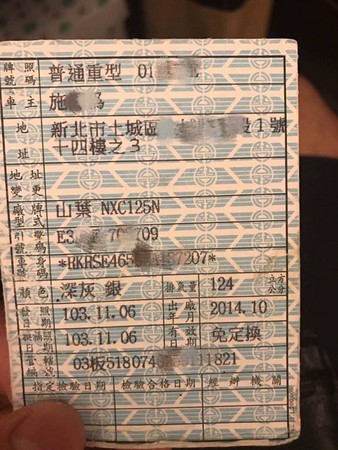 牌照號碼 普通重型 01
車主 施
地址 新北市土城區 1號
十四樓之3
地址變更
廠牌型式 山葉 NXC125N
引擎號碼 E3 709
車身號碼 *RKRSE465 7207*
顏色 深灰 銀 排氣量 124 立方公分
發照日期 103.11.06 出廠年月 2014.10
換補照日期 103.11.06 有效日期 免定換
03板518074 11821
指定檢驗日期 檢驗合格日期 經辦機關